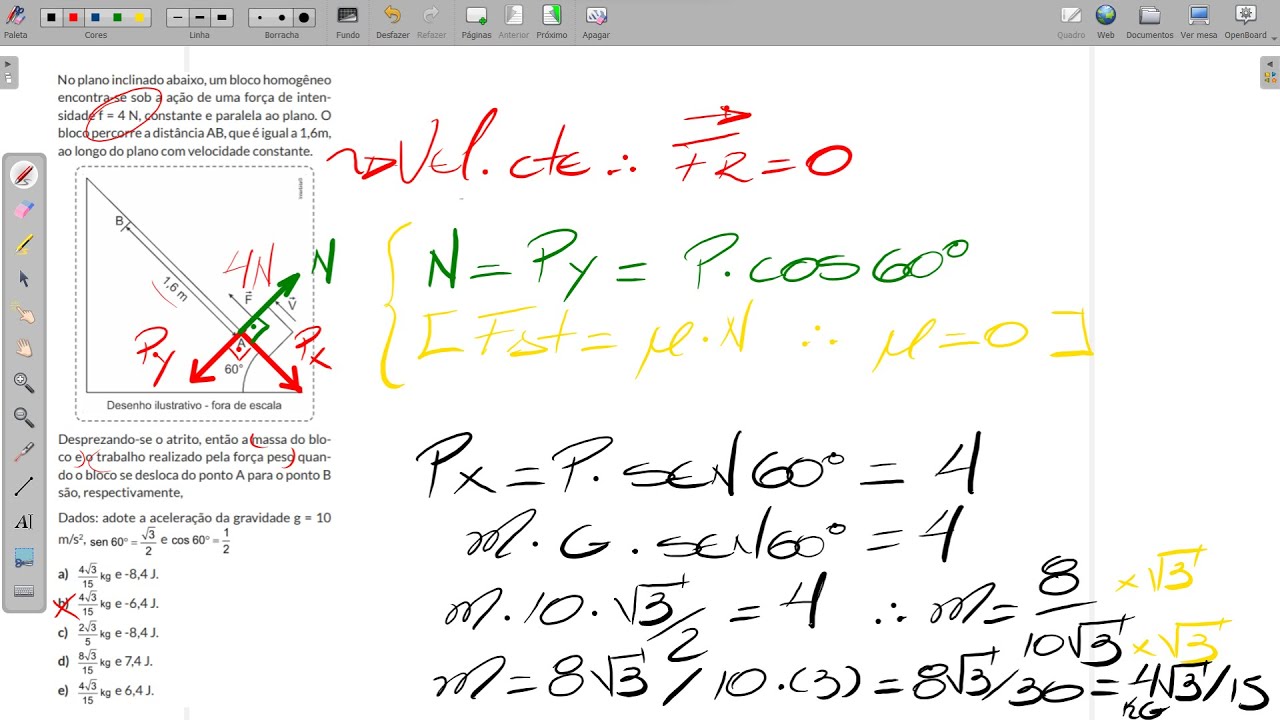 Paleta
Cores
Linha
Borracha
Fundo
Desfazer
Refazer
Páginas
Anterior
Próximo
Apagar
Quadro
Web
Documentos
Ver mesa
OpenBoard
No plano inclinado abaixo, um bloco homogêneo
encontra-se sob a ação de uma força de inten-
sidade f = 4 N, constante e paralela ao plano. O
bloco percorre a distância AB, que é igual a 1,6m,
ao longo do plano com velocidade constante.
B
1,6 m
4N
N
F
V
P.y
A
Px
60°
Desenho ilustrativo - fora de escala
Desprezando-se o atrito, então a massa do blo-
co e o trabalho realizado pela força peso quan-
do o bloco se desloca do ponto A para o ponto B
são, respectivamente,
Dados: adote a aceleração da gravidade g = 10
m/s², sen 60° = √3/2 e cos 60° = 1/2
a) 4√3/15 kg e -8,4 J.
b) 4√3/15 kg e -6,4 J.
c) 2√3/5 kg e -8,4 J.
d) 8√3/15 kg e 7,4 J.
e) 4√3/15 kg e 6,4 J.
Vel. cte ∴ FR = 0
N = Py = P. cos 60°
[ Fat = μ . N ∴ μ = 0 ]
Px = P. sen 60° = 4
m . G . sen 60° = 4
m . 10 . √3/2 = 4 ∴ m = 8/10√3 ×√3 ×√3
m = 8√3 / 10 . (3) = 8√3/30 = 4√3/15
KG